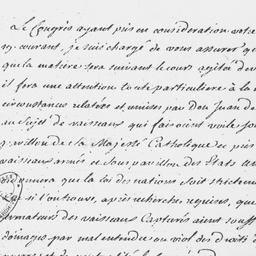 Le Congrès ayant pris en consideration votre
19. courant, je suis chargé de vous assurer que
que la matiere sera suivant le cours
il fera une attention toute particuliere à la
circonstances relatées et unies par Don Juan de
au Sujet de vaisseaux qui faisoient voile sous
pavillon de la Majesté Catholique de
vaisseaux armés et sous pavillon des Etats Un
que la loi des nations soit strictem
si l'on trouve, après recherches requises, que
armateurs des vaisseaux Capturés aient souff
dommages par mal entendu ou viol des Droits d